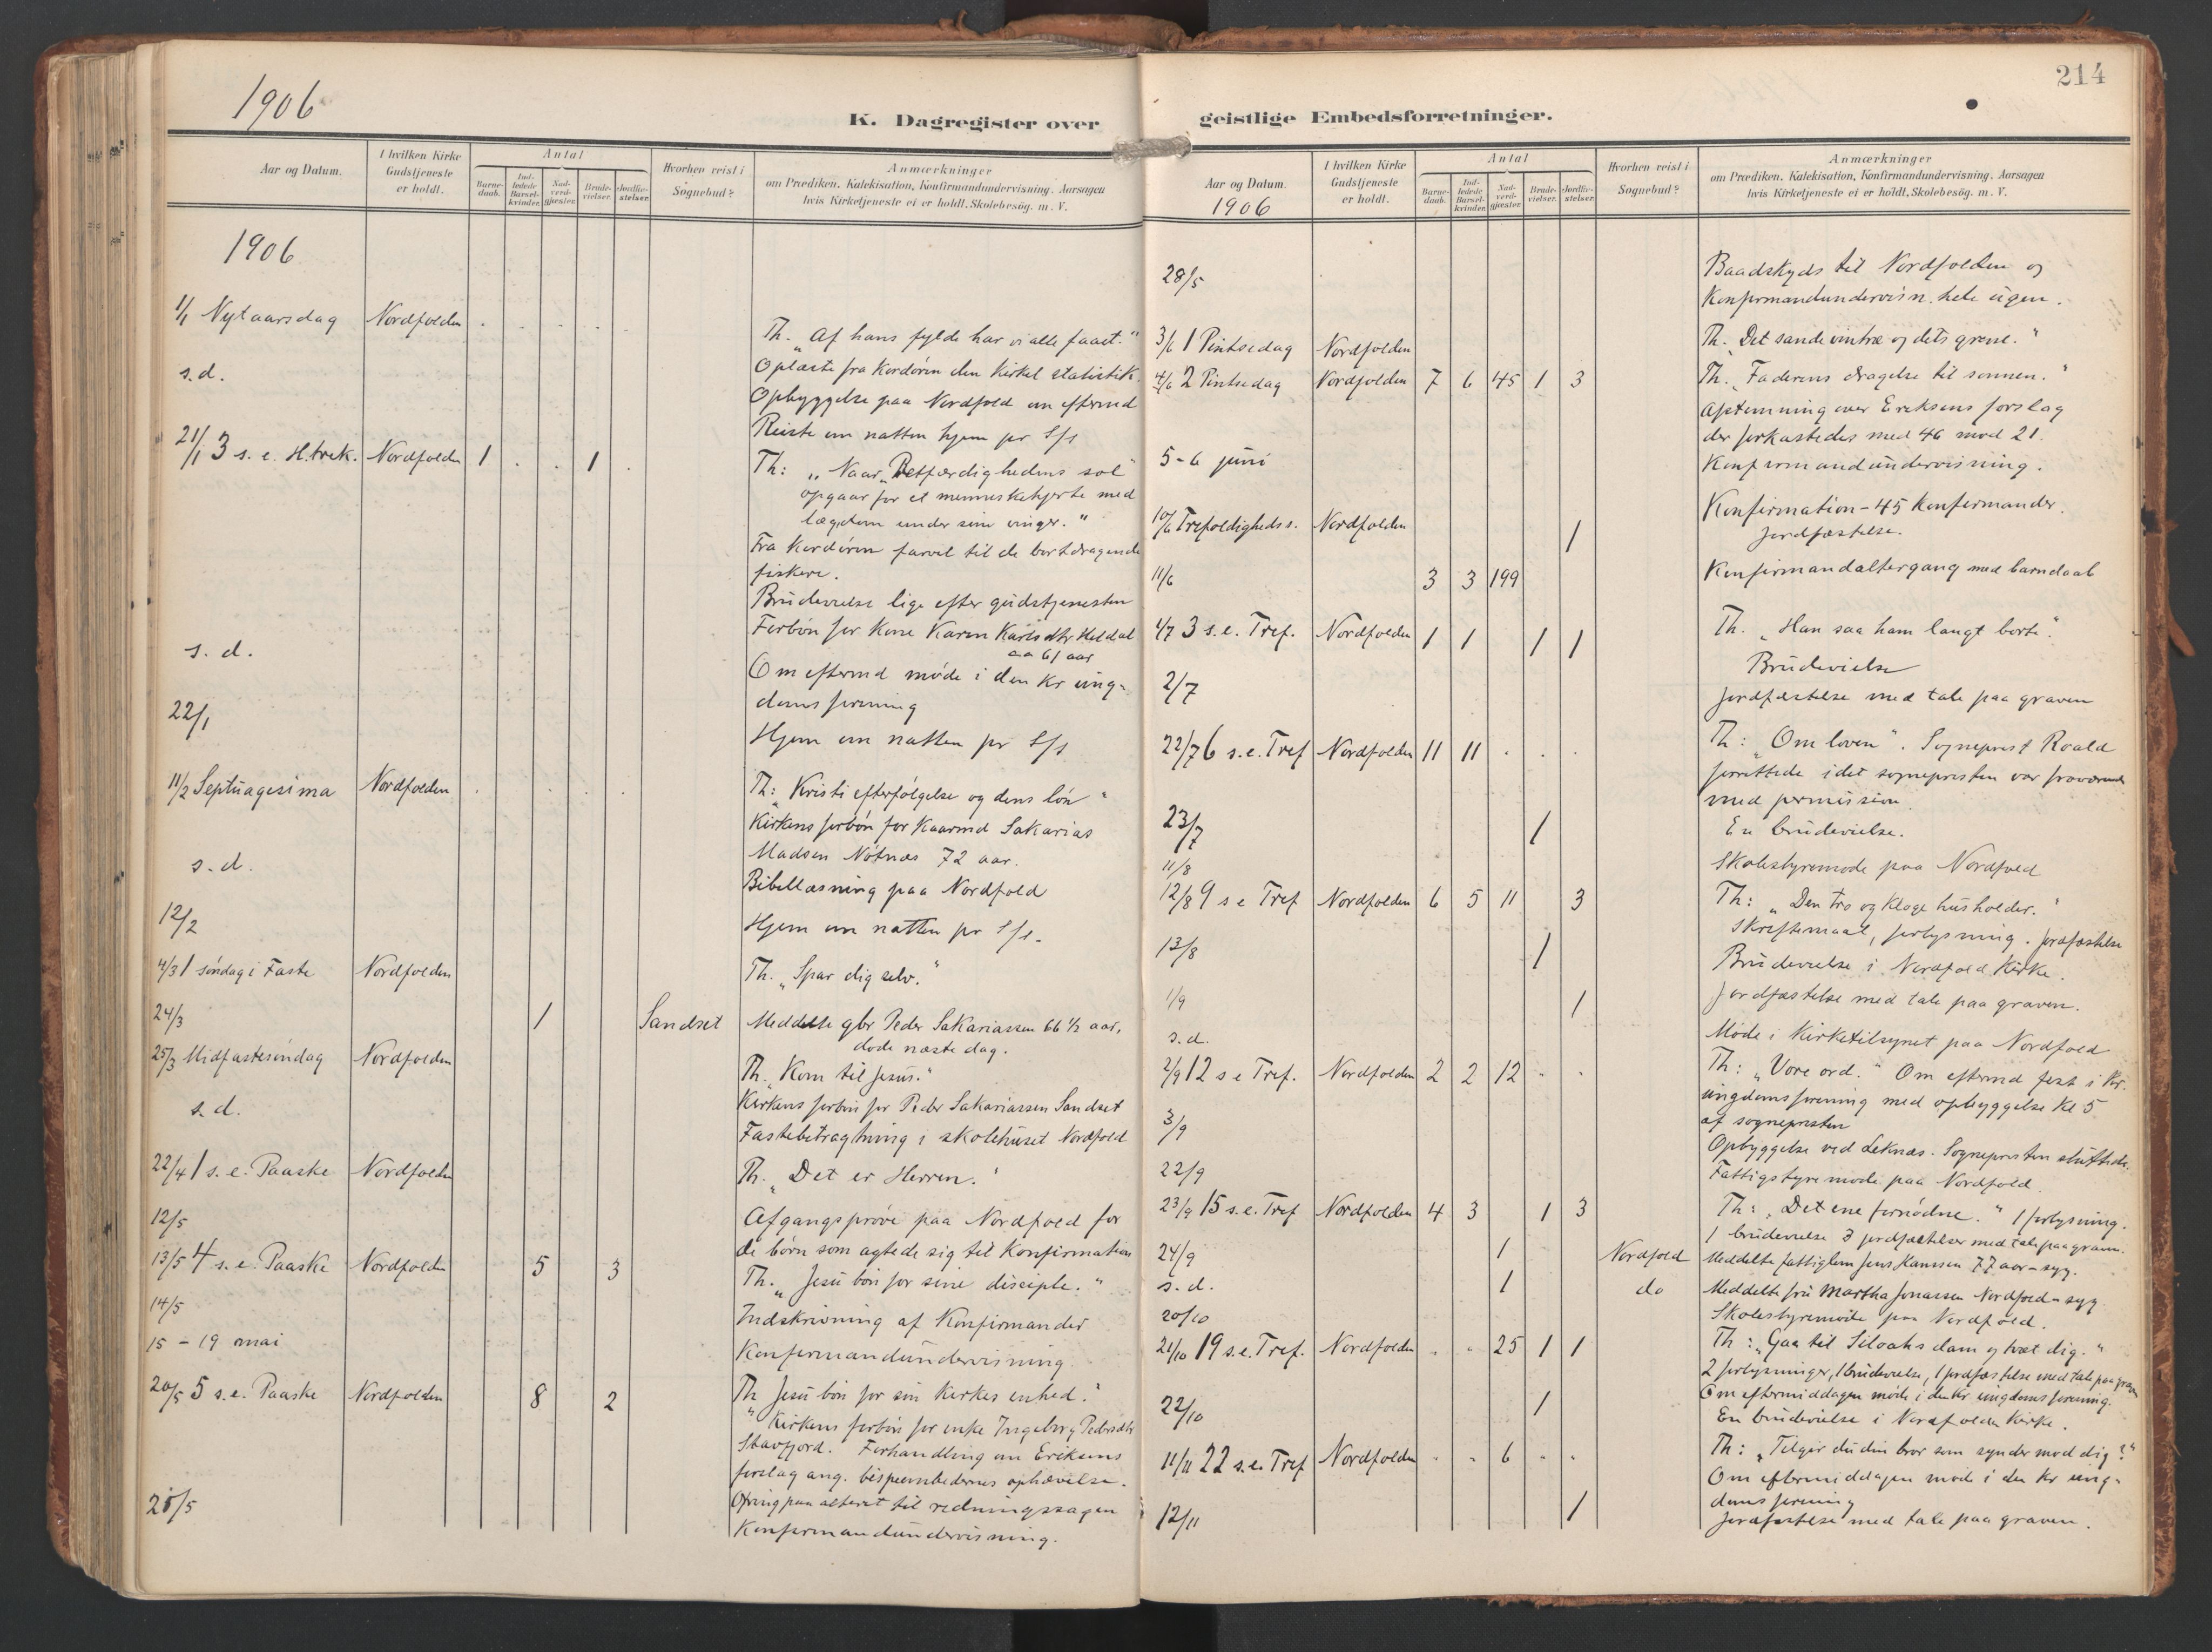 1906
K. Dagregister over
Aar og Datum.
I hvilken Kirke Gudstjeneste er holdt.
Antal
Barne-daab.
Ind-ledede Barsel-kvinder.
Nad-verd-gjester.
Brude-vielser.
Jordfæ-stelser.
Hvorhen reist i Sognebud?
Anmærkninger
om Prædiken. Katekisation, Konfirmandundervisning. Aarsagen
hvis Kirketjeneste ei er holdt. Skolebesøg. m. V.
1906
1/1 Nytaarsdag Nordfolden
Th. „Af hans fylde har vi alle faaet."
s.d. Oplæste fra Kordøren den kirkel statistik.
Opbyggelse paa Nordfold om eftermd
Reiste om natten hjem pr S/s
21/1 3 s. e. H.trek. Nordfolden 1 . . 1 .
Th: „Naar „Retfærdighedens sol"
opgaar for et menneskehjerte med
lægdom under sine vinger."
Fra Kordøren farvel til de bortdragende
fiskere.
Brudevielse lige efter gudstjenesten
Forbøn for Kone Karen Karlsdtr Heldal
aa 61 aar
s. d. Om eftermd møde i den kr ung-
domsforening
22/1 Hjem om natten pr S/s
11/2 Septuagesima Nordfolden
Th: „Kristi efterfølgelse og dens løn"
Kirkens forbøn for Kaarmd Sakarias
Madsen Nøtnæs 72 aar.
s. d. Bibellæsning paa Nordfold
12/2 Hjem om natten pr S/s.
4/3 1 søndag i Faste Nordfolden
Th. „Spar dig selv."
24/3 1 Sandset Meddelte gbr Peder Sakariassen 66 1/2 aar,
døde næste dag.
25/3 Midfastesøndag Nordfolden
Th. „Kom til Jesus."
Kirkens forbøn for Peder Sakariassen Sandset
s. d. Fastebetragtning i skolehuset Nordfold
22/4 1 s. e. Paaske Nordfolden
Th. „Det er Herren."
12/5 Afgangsprøve paa Nordfold for
de børn som agtede sig til Konfirmation
13/5 4 s. e. Paaske Nordfolden 5 3
Th. „Jesu bøn for sine disciple."
14/5 Indskrivning af Konfirmander
15 - 19 mai Konfirmandundervisning
20/5 5 s. e. Paaske Nordfolden 8 2
Th „Jesu bøn for sin Kirkes enhed."
Kirkens forbøn for enke Ingeborg Pedersdtr
Stavfjord. Forhandling om Eriksens
forslag ang. bispeembedernes ophævelse.
Ofring paa alteret til redningssagen
25/5 Konfirmandundervisning.
214
geistlige Embedsforretninger.
Aar og Datum.
1906
I hvilken Kirke Gudstjeneste er holdt.
Antal
Barne-daab.
Ind-ledede Barsel-kvinder.
Nad-verd-gjester.
Brude-vielser.
Jordfæ-stelser.
Hvorhen reist i Sognebud?
Anmærkninger
om Prædiken. Katekisation, Konfirmandundervisning. Aarsagen
hvis Kirketjeneste ei er holdt. Skolebesøg. m. V.
28/5 Baadskyds til Nordfolden og
Konfirmandundervisn. hele ugen.
3/6 1 Pintsedag Nordfolden Th. „Det sande vintræ og dets grene."
4/6 2 Pintsedag Nordfolden 7 6 45 1 3 Th. „Faderens dragelse til sønnen."
Afstemning over Eriksens forslag
der forkastedes med 46 mod 21.
5-6 juni Konfirmandundervisning.
10/6 Trefoldigheds s. Nordfolden 1 Konfirmation - 45 Konfirmander.
Jordfæstelse.
11/6 3 3 199 Konfirmandaltergang med barnedaab
1/7 3 s. e. Tref. Nordfolden 1 1 1 1 Th. „Han saa ham langt borte."
Brudevielse
2/7 Jordfæstelse med tale paa graven
22/7 6 s. e. Tref Nordfolden 11 11 . . . Th: „Om loven". Sogneprest Roald
forrettede idet sognepresten var fraværende
med permission.
23/7 1 En brudevielse.
11/8 Skolestyremøde paa Nordfold
12/8 9 s e Tref Nordfolden 6 5 11 3 Th: „Den tro og kloge husholder."
Skriftemaal, forlysning. Jordfæstelse
13/8 1 Brudevielse i Nordfold Kirke.
1/9 1 Jordfæstelse med tale paa graven.
s.d. Møde i Kirketilsynet paa Nordfold
2/9 12 s e Tref. Nordfolden 2 2 12 . . Th: „Vore ord." Om eftermd fest i Kr.
ungdomsforening med opbyggelse Kl 5
af sognepresten
3/9 Opbyggelse ved Leknæs. Sognepresten sluttede.
22/9 Fattigstyremøde paa Nordfold.
23/9 15 s. e. Tref Nordfolden 4 3 1 3 Th: „Det ene fornødne." 1 forlysning.
1 brudevielse 3 jordfæstelser med tale paa graven.
24/9 1 Nordfold Meddelte fattiglem Jens Hanssen 77 aar - syg.
s. d. 1 do Meddelte fru Martha Jonassen Nordfold - syg.
20/10 Skolestyremøde paa Nordfold.
21/10 19 s. e. Tref. Nordfolden . . 25 1 1 Th: „Gaa til Siloahs dam og tvæt dig."
2 forlysninger, 1 brudevielse, 1 jordfæstelse med tale paa graven
Om eftermiddagen møde i den kr. ungdomsforening.
22/10 1 En brudevielse i Nordfolden Kirke.
11/11 22 s. e. Tref Nordfolden . . 6 . . Th: „Tilgir du din bror som synder mod dig?"
Om eftermiddagen møde i den kr ung-
domsforening
12/11 1 Jordfæstelse med tale paa graven.